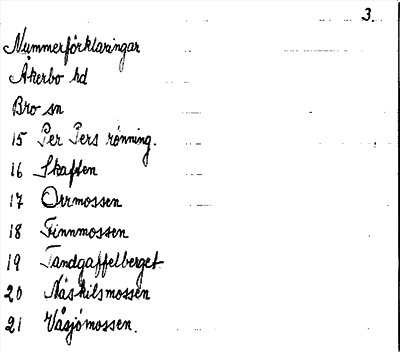 3.
Nummerförklaringar
Åkerbo hd
Bro sn
15 Per Pers rönning.
16 Skaften
17 Orrmossen
18 Finnmossen
19 Tandgaffelberget
20 Näskilsmossen
21 Våsjömossen.